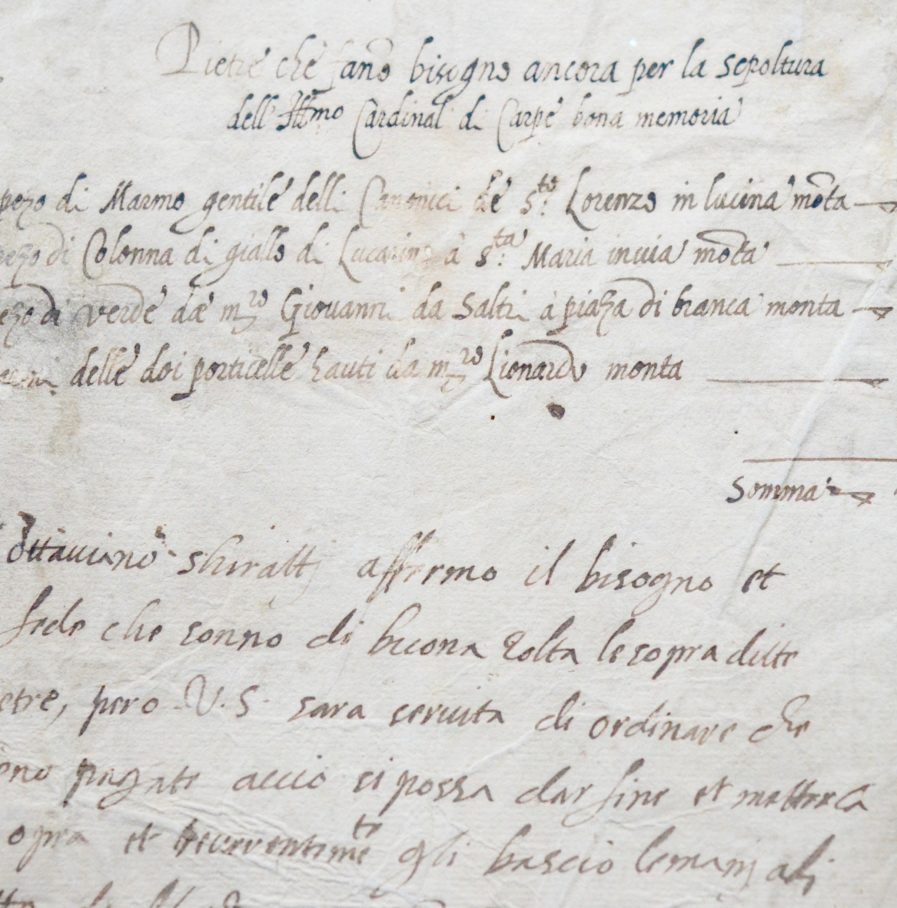 Pietre che fano bisogno ancora per la sepoltura
dell' Ill:mo Cardinal di Carpe bona memoria
pezo di Marmo gentile delli Canonici de s.to Lorenzo in lucina mota
pezo di Colonna di giallo di Lucarino à s.ta Maria in via mota
ezo di verde da m.ro Giovanni da Salti à piaza di branca monta
delle doi porticelle hauti da m.ro Lionardo monta
Somma
ottaviano affermo il bisogno et
fede che sonno di buona le sopra ditte
etre, pero V. S. sara servita di ordinare che
eno pagate accio si possa dar fine et metterla
opra et reverentem.te gli bascio le mani